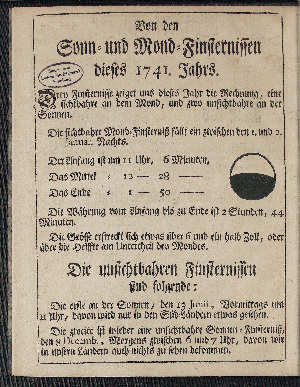 Von den
Sonn- und Mond-Finsternissen
dieses 1741. Jahrs.
Dreÿ Finsternisse zeiget uns dieses Jahr die Rechnung, eine
sichtbahre an dem Mond, und zwo unsichtbahre an der
Sonnen.
Die sichtbahre Mond-Finsternuß fällt ein zwischen den 1. und 2.
Januar. Nachts.
Der Anfang ist um 11 Uhr, 6 Minuten,
Das Mittel " 12 — 28 —
Das Ende " 1 — 50 —
Die Währung vom Anfang bis zu Ende ist 2 Stunden, 44
Minuten.
Die Grösse erstreckt sich etwas über 6 und ein halb Zoll, oder
über die Helffte am Untertheil des Mondes.
Die unsichtbahren Finsternissen
sind folgende:
Die erste an der Sonnen, den 13 Junii, Vormittags um
11 Uhr, davon wird nur in den Süd-Ländern etwas gesehen.
Die zweite ist wieder eine unsichtbahre Sonnen-Finsternuß,
den 8 Decemb., Morgens zwischen 6 und 7 Uhr, davon wir
in unsern Ländern auch nichts zu sehen bekommen.